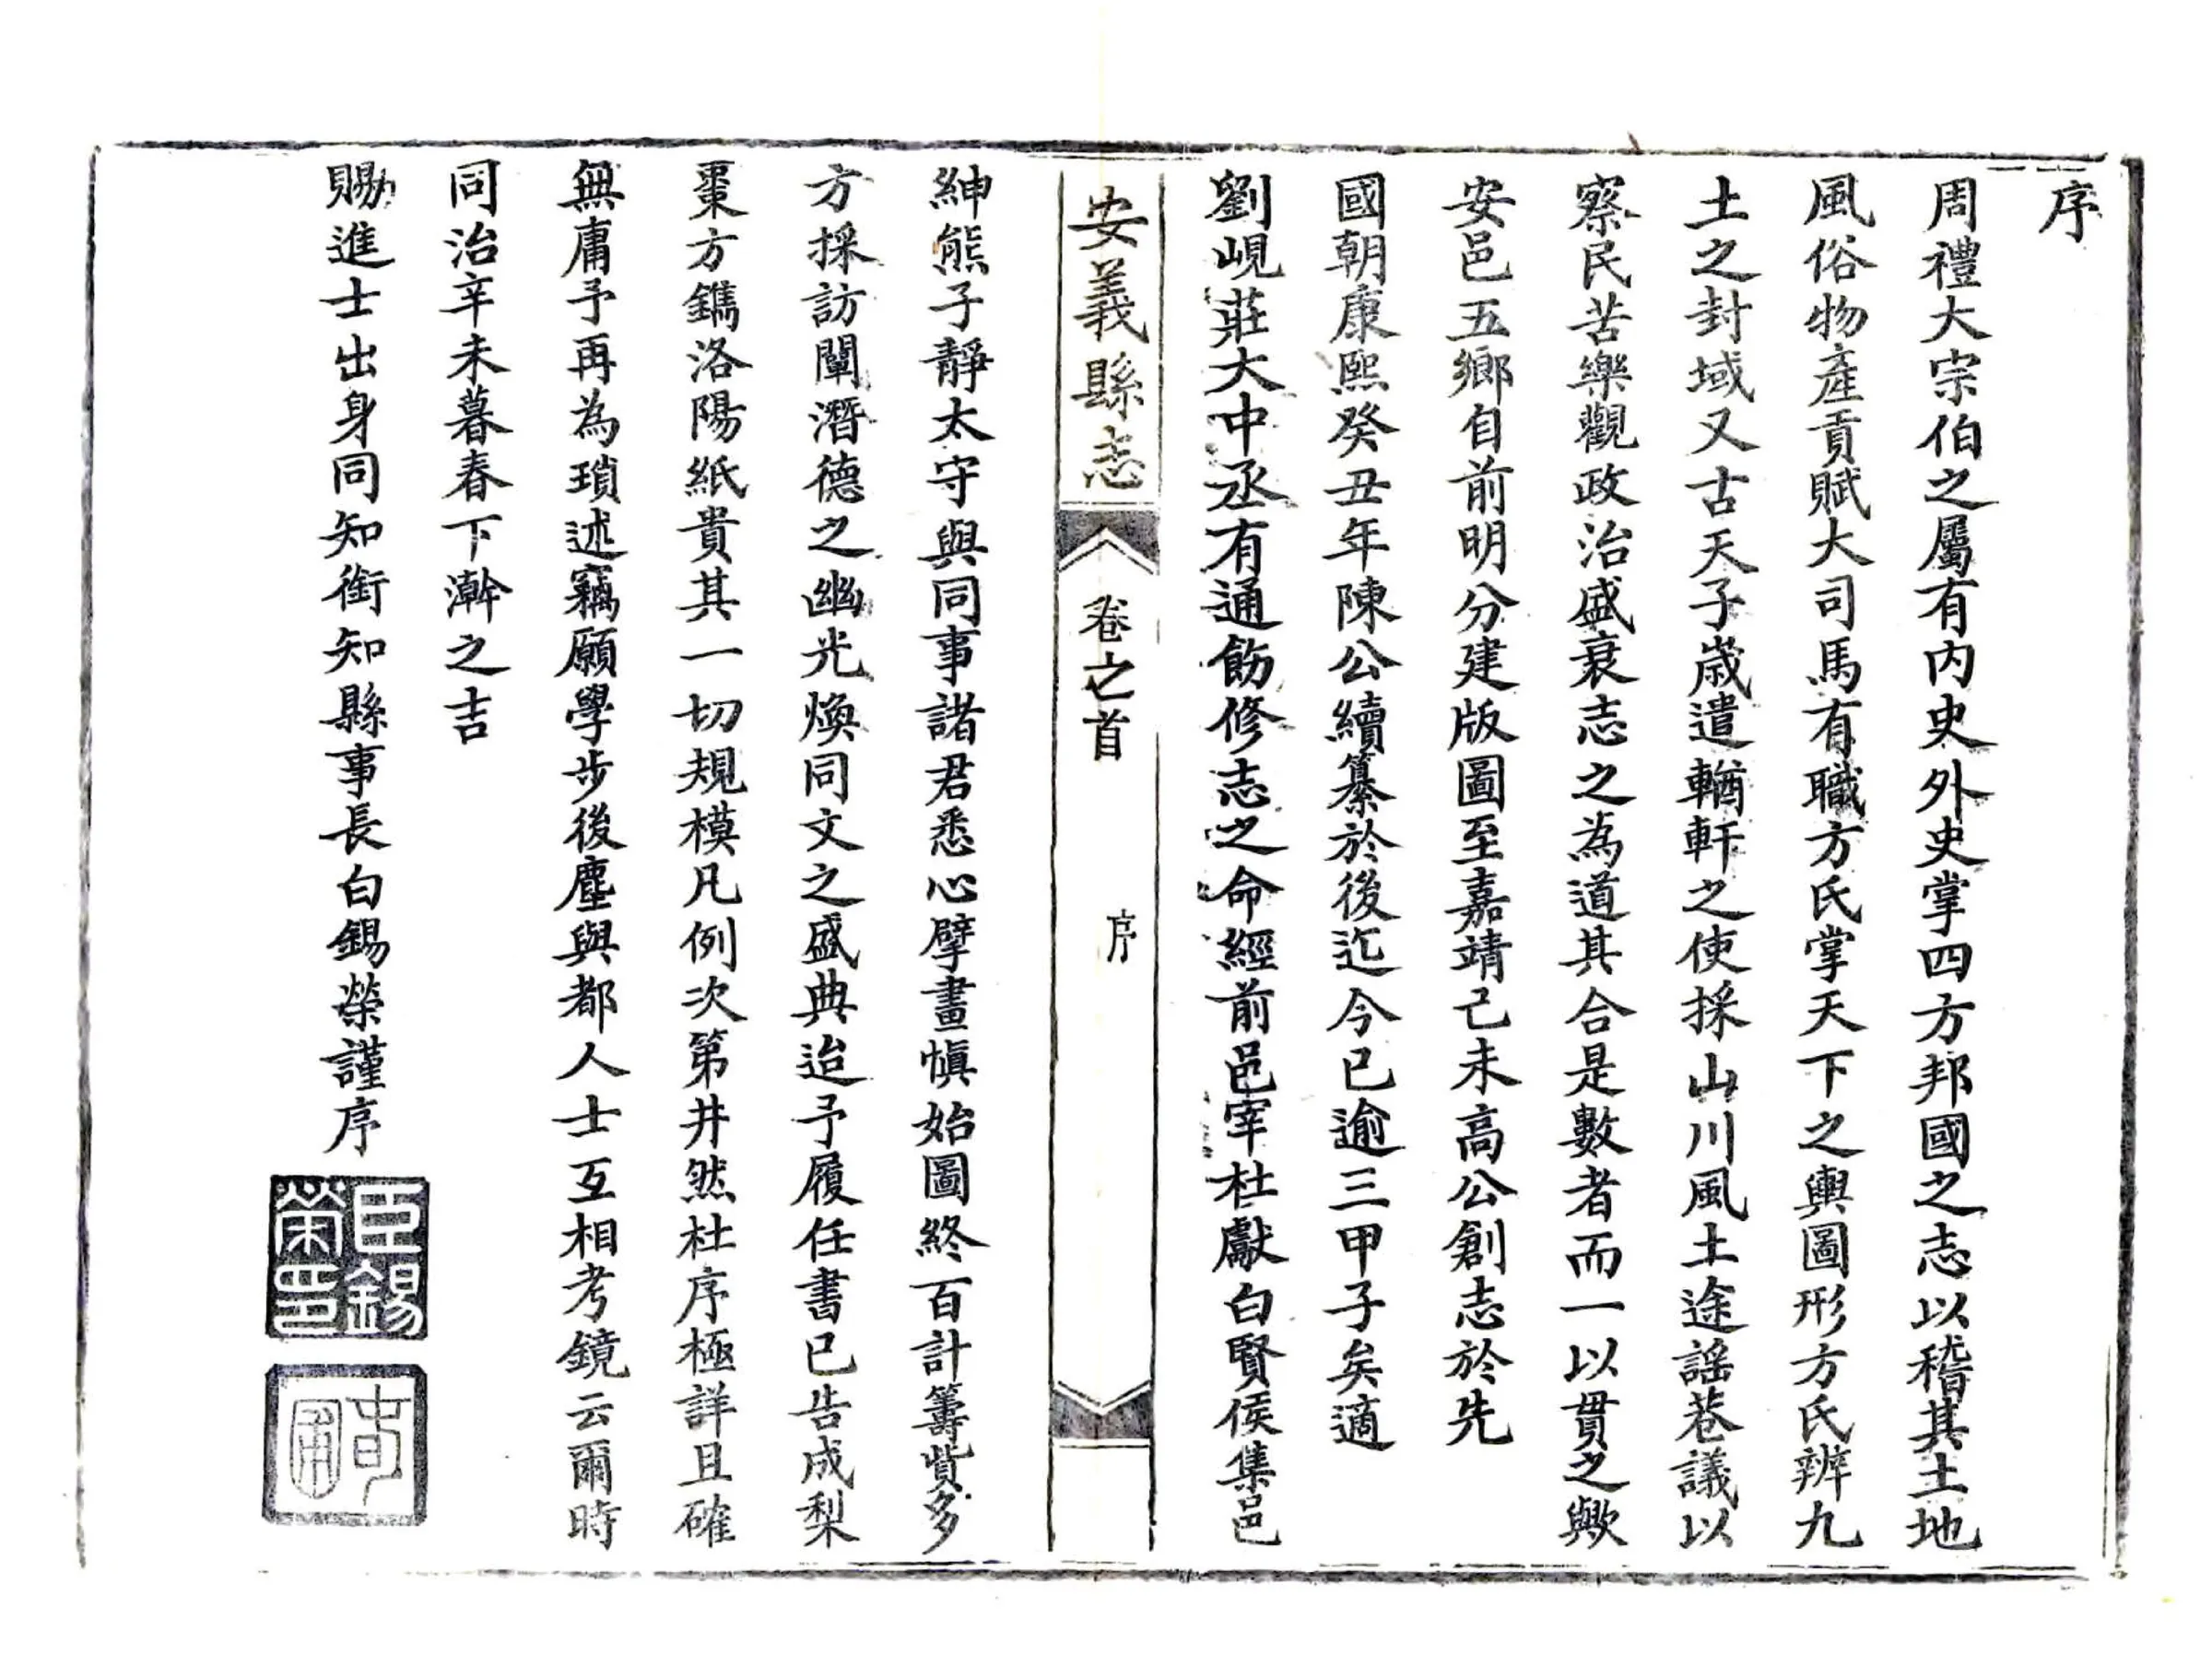 序
周禮大宗伯之屬有内史外史掌四方邦國之志以稽其土地
風俗物產貢賦大司馬有職方氏掌天下之輿圖形方氏辨九
土之封域又古天子歲遣輶軒之使採山川風土途謠巷議以
察民苦樂觀政治盛衰志之為道其合是數者而一以貫之歟
安邑五鄉自前明分建版圖至嘉靖己未高公創志於先
國朝康熙癸丑年陳公續纂於後迄今已逾三甲子矣適
劉峴莊大中丞有通飭修志之命經前邑宰杜獻白賢侯集邑
安義縣志
卷之首
序
紳熊子靜太守與同事諸君悉心擘畫慎始圖終百計籌貲多
方採訪闡潛德之幽光煥同文之盛典迨予履任書已告成梨
棗方鐫洛陽紙貴其一切規模凡例次第井然杜序極詳且確
無庸予再為瑣述竊願學步後塵與都人士互相考鏡云爾時
同治辛未暮春下澣之吉
賜進士出身同知銜知縣事長白錫榮謹序
臣錫榮印